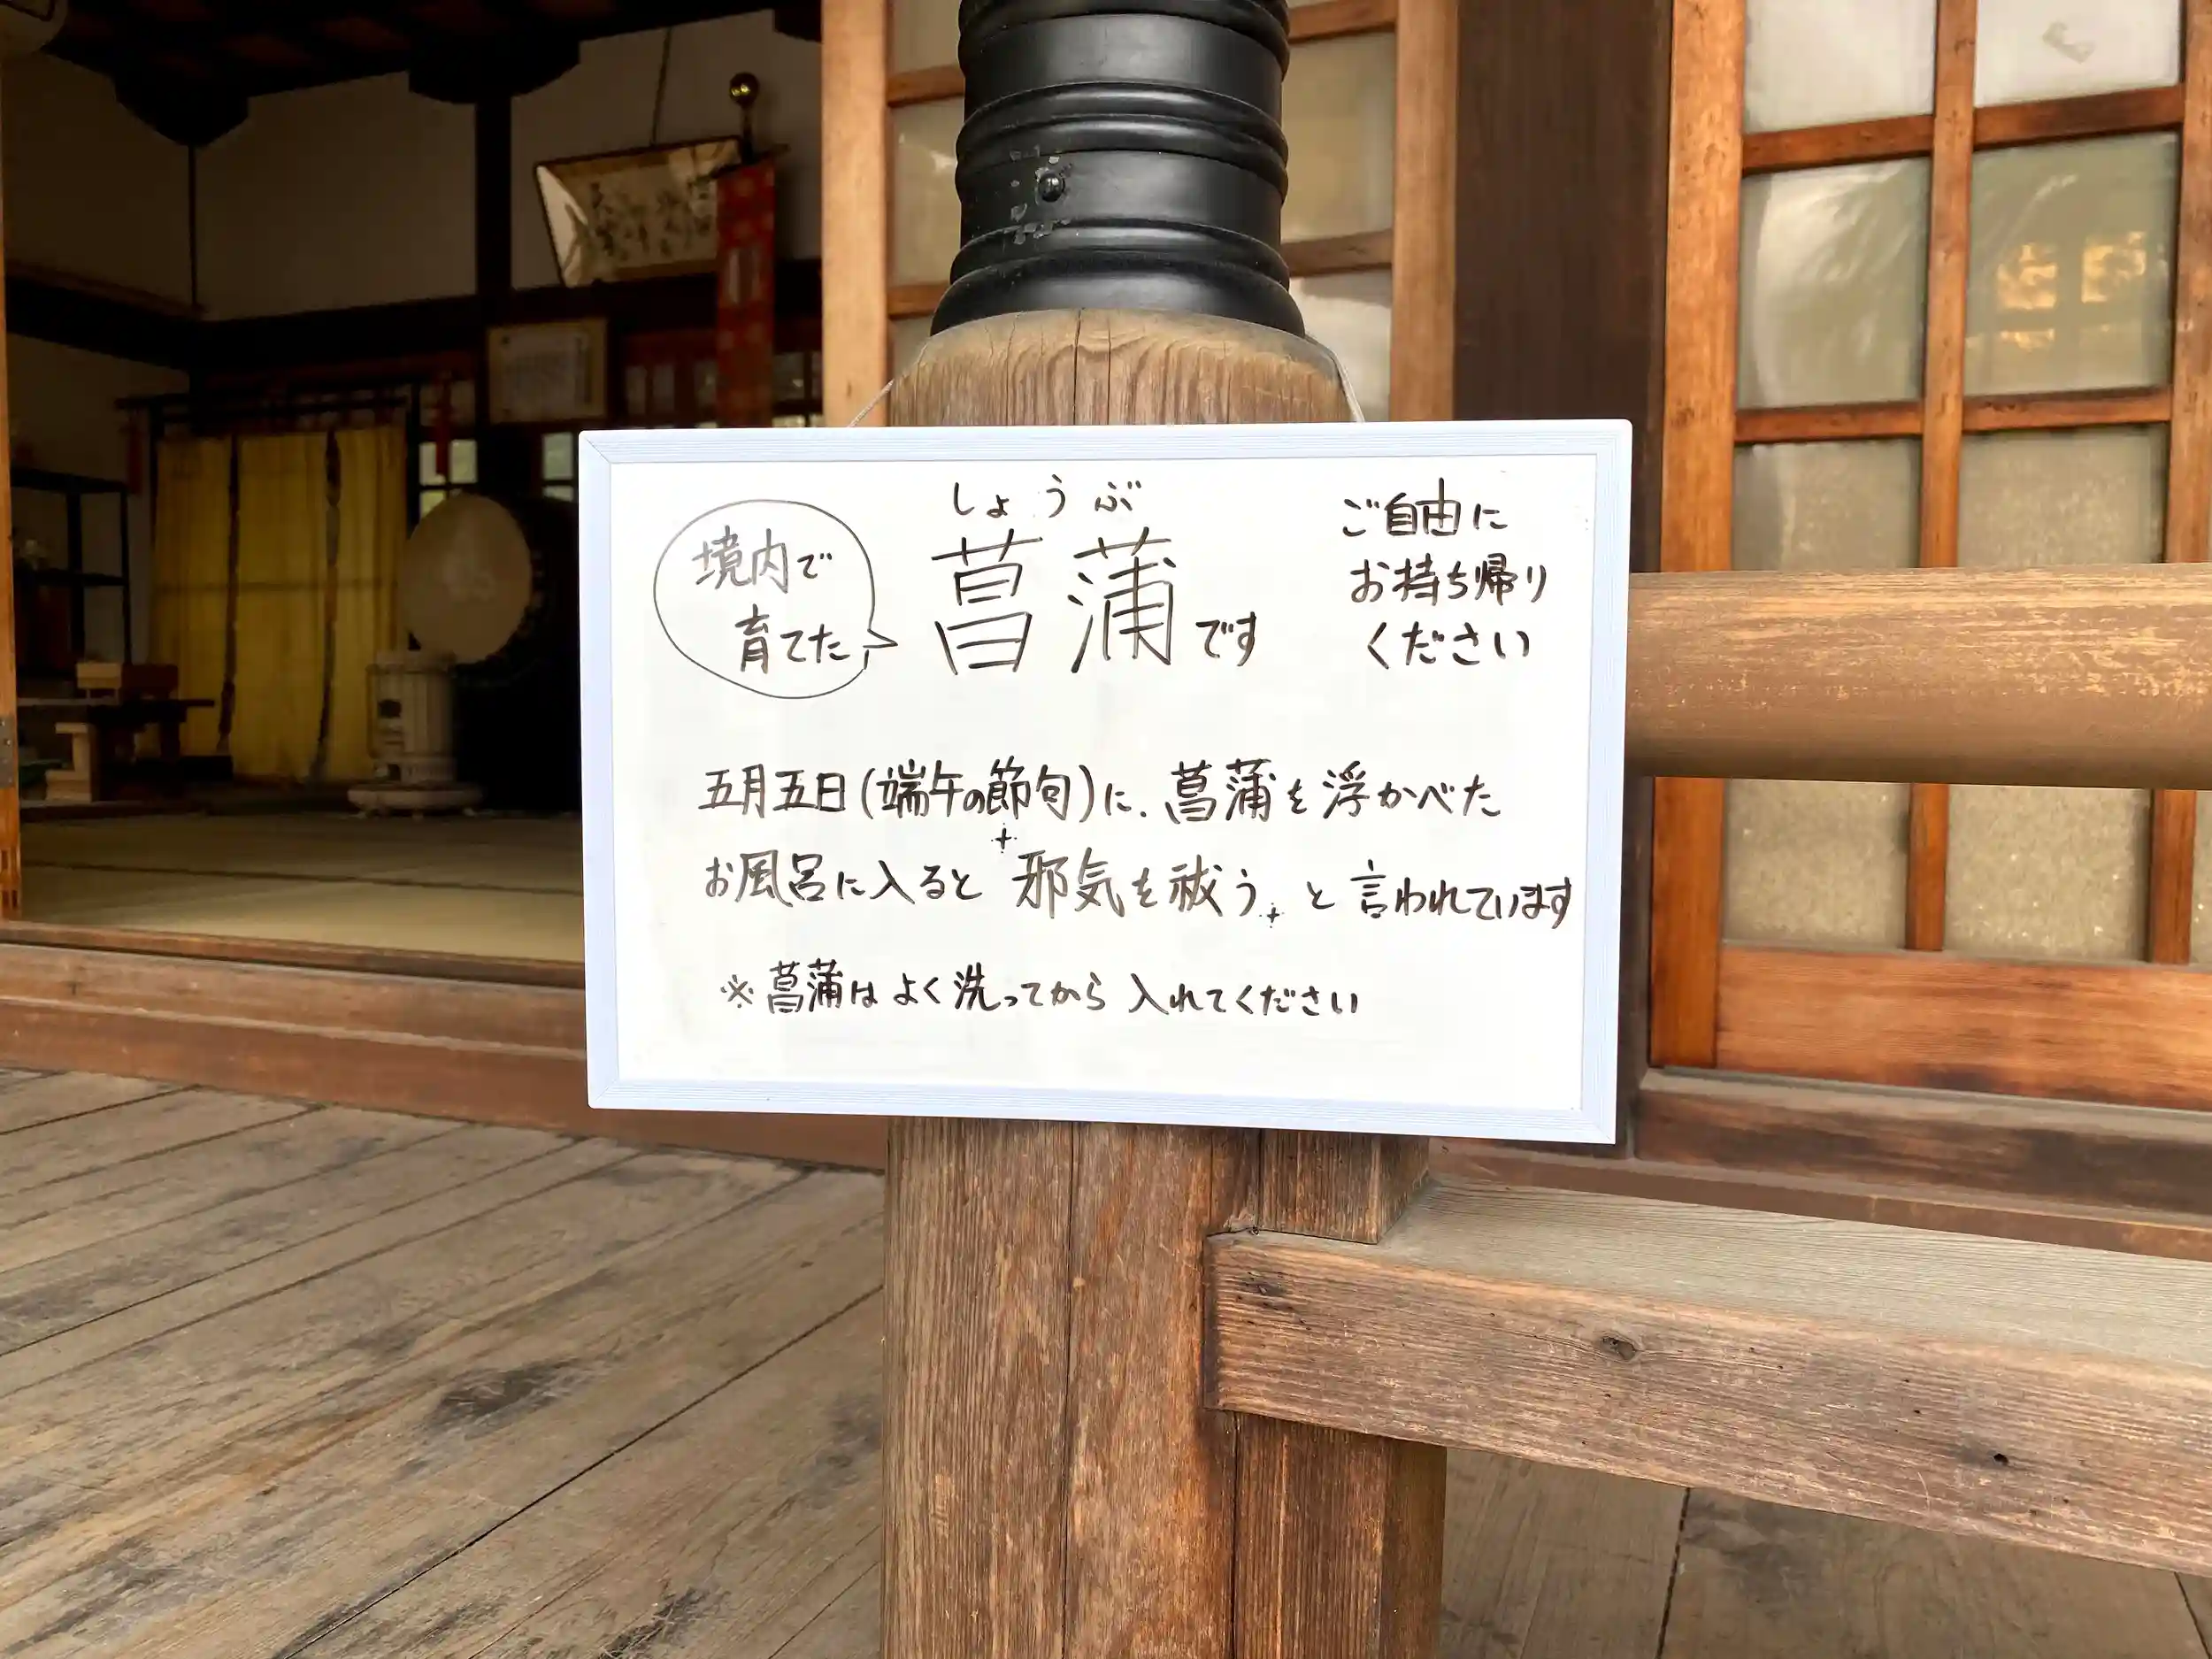 境内で
育てた
しょうぶ
菖蒲です
ご自由に
お持ち帰り
ください
五月五日(端午の節句)に、菖蒲を浮かべた
お風呂に入ると 邪気を祓う と言われています
※菖蒲はよく洗ってから 入れてください